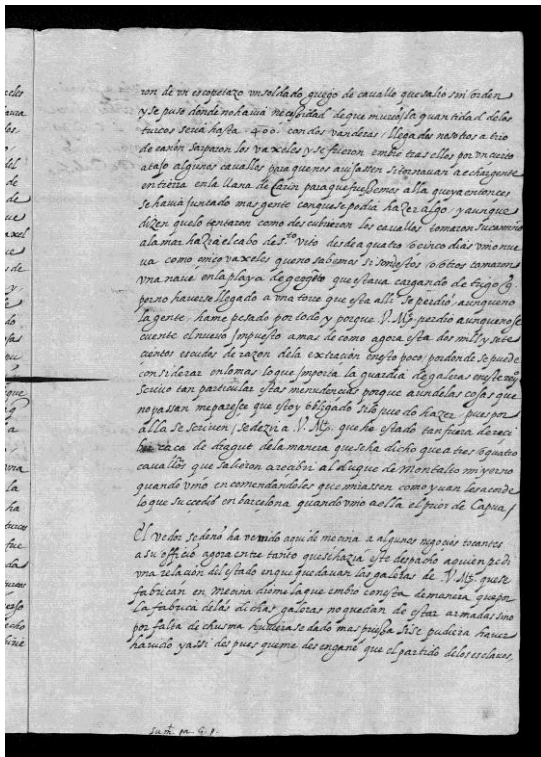 ron de vn escopetazo vn soldado griego de cavallo que salio sin orden
y se puso donde no havia necessidad de que murio, la quantidad delos
turcos seria hasta .400. con dos vanderas, llegados nosotros a tiro
de cañon sarparon los vaxeles y se fueron embie tras ellos por un cierto
atajo algunos cavallos para que nos avisassen si tornavan a echar gente
en tierra en la llana de Carin para que fuessemos alla que ya entonces
se havia juntado mas gente con que se podia hazer algo, y aunque
dizen que lo tentaron como descubrieron los cavallos tomaron su camino
a la mar hazia el cabo de S.to Vito desde a quatro o cinco dias vino nue
va como cinco vaxeles que no sabemos si son estos o otros tomaron
vna nave en la playa de que estava cargando de trigo q
por no haverse llegado a vna torre que esta alli se perdio, aunque no
la gente, hame pesado por todo y porque V. M.d perdio aunque no se
cuente el nuevo Impuesto a mas de como agora esta dos mil y sete
cientos escudos de razon dela extracion en esto poco, por donde se puede
considerar en lo mas lo que importa la guardia de galeras en este rey.o
scrivo tan particular estas menudencias porque aun delas cosas que
no passan me paresce que estoy obligado si lo puedo hazer, pues por
alla se scriven, se dezir a V. M.d que he estado tan fuera de reci
bir caça de dragut dela manera que se ha dicho que a tres o quatro
cavallos que salieron a recibir al duque de Montalto mi yerno
quando vino encomendandoles que mirassen como yvan les acorde
lo que succedio en barcelona quando vino a ella el prior de Capua,
El vedor sedeño ha venido aqui de mecina a algunos negocios tocantes
a su officio agora entre tanto que se hazia este despacho a quien pedi
vna relacion del estado en que quedavan las galeras de V. M.d que se
fabrican en mecina diome la que embio con esta de manera que por
la fabrica de las dichas galeras no quedan de estar armadas sino
por falta de chusma hubiera se dado mas priessa si se pudiera haver
havido y assi despues que me desengañe que el partido de los esclavos,